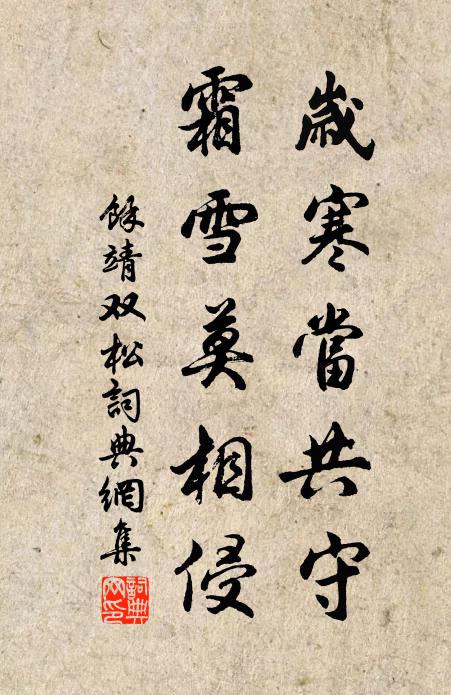 歲寒當共守
霜雪莫相侵
餘靖双松詞典網集
詞典网印